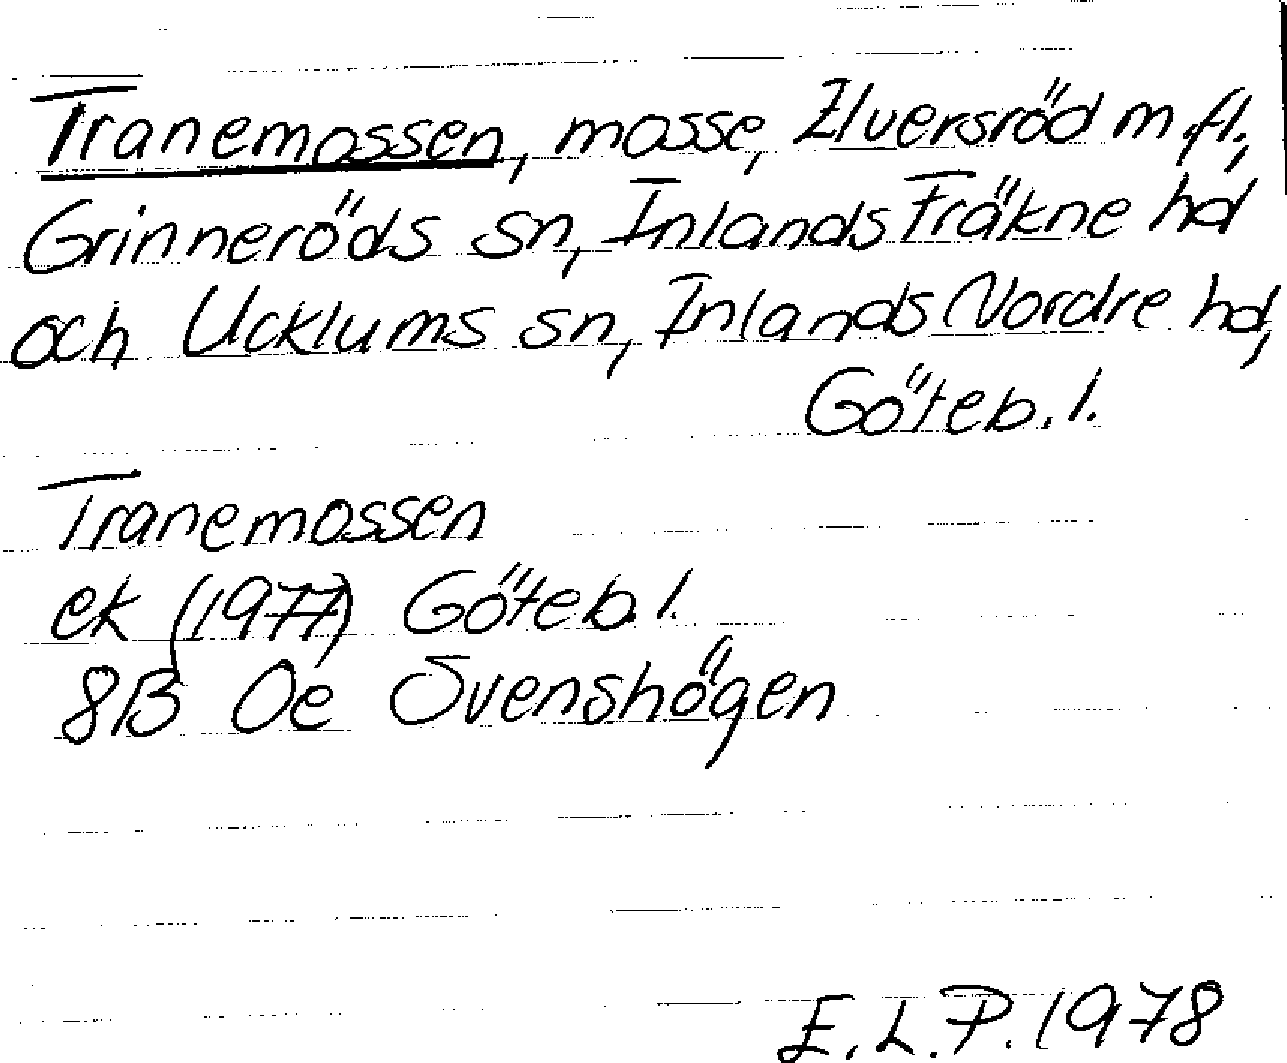 Tranemossen, mosse, Elversröd m.fl.,
Grinneröds sn, Inlands Fräkne hd
och Ucklums sn, Inlands Nordre hd,
Göteb. l.
Tranemossen
ek (1977) Göteb. l.
8B Oe Svenshögen
E. L. P. 1978